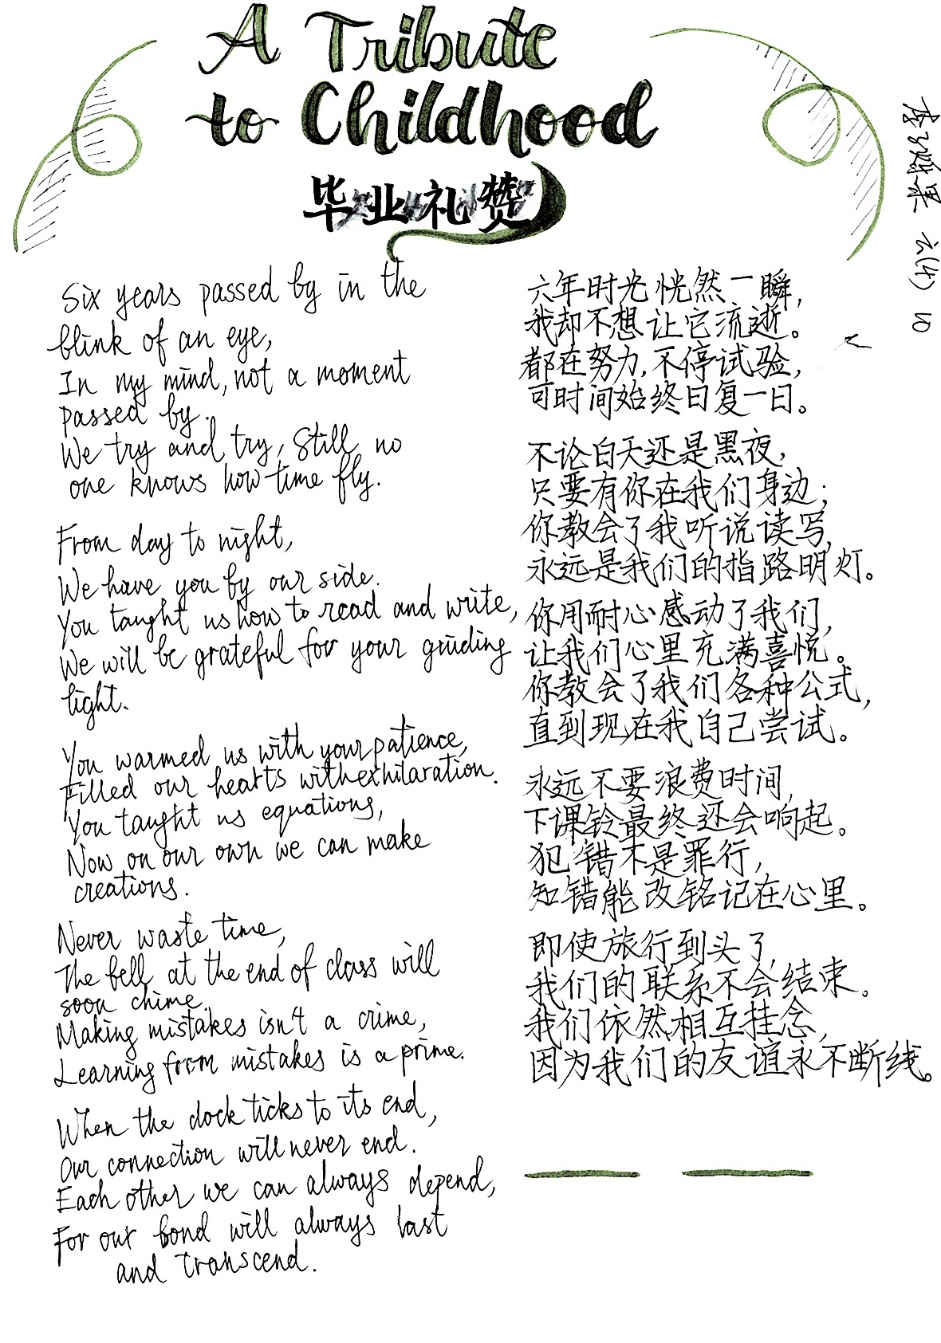 A Tribute
to Childhood
毕业礼赞
六(4) 10
Six years passed by in the
blink of an eye,
In my mind, not a moment
passed by.
We try and try, Still no
one knows how time fly.
From day to night,
We have you by our side.
You taught us how to read and write,
We will be grateful for your guiding
light.
You warmed us with your patience,
Filled our hearts with exhilaration.
You taught us equations,
Now on our own we can make
creations.
Never waste time,
The bell at the end of class will
soon chime.
Making mistakes isn't a crime,
Learning from mistakes is a prime.
When the clock ticks to its end,
Our connection will never end.
Each other we can always depend,
For our bond will always last
and transcend.
六年时光恍然一瞬,
我却不想让它流逝。
都在努力,不停试验,
可时间始终日复一日。
不论白天还是黑夜,
只要有你在我们身边;
你教会了我听说读写,
永远是我们的指路明灯。
你用耐心感动了我们,
让我们心里充满喜悦。
你教会了我们各种公式,
直到现在我自己尝试。
永远不要浪费时间,
下课铃最终还会响起。
犯错不是罪行,
知错能改铭记在心里。
即使旅行到头了,
我们的联系不会结束。
我们依然相互挂念,
因为我们的友谊永不断线。